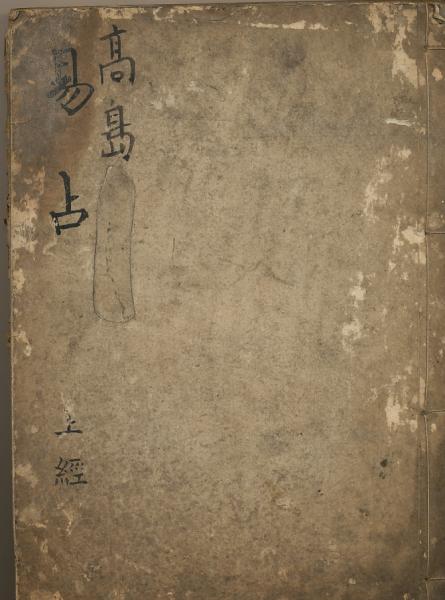 高島
易占
上經